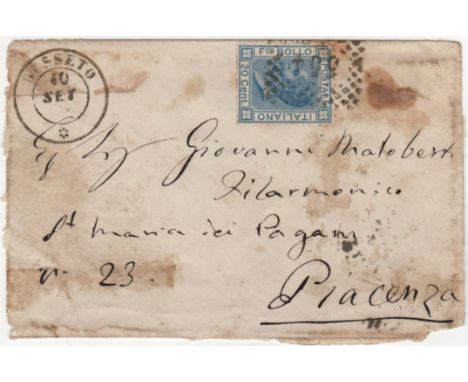 BUSSETO
10
SET
FCO BOLLO
POSTALE
ITALIANO
20 Cent.
Giovanni Maloberti
Filarmonico
Sta Maria dei Pagani
n. 23.
Piacenza